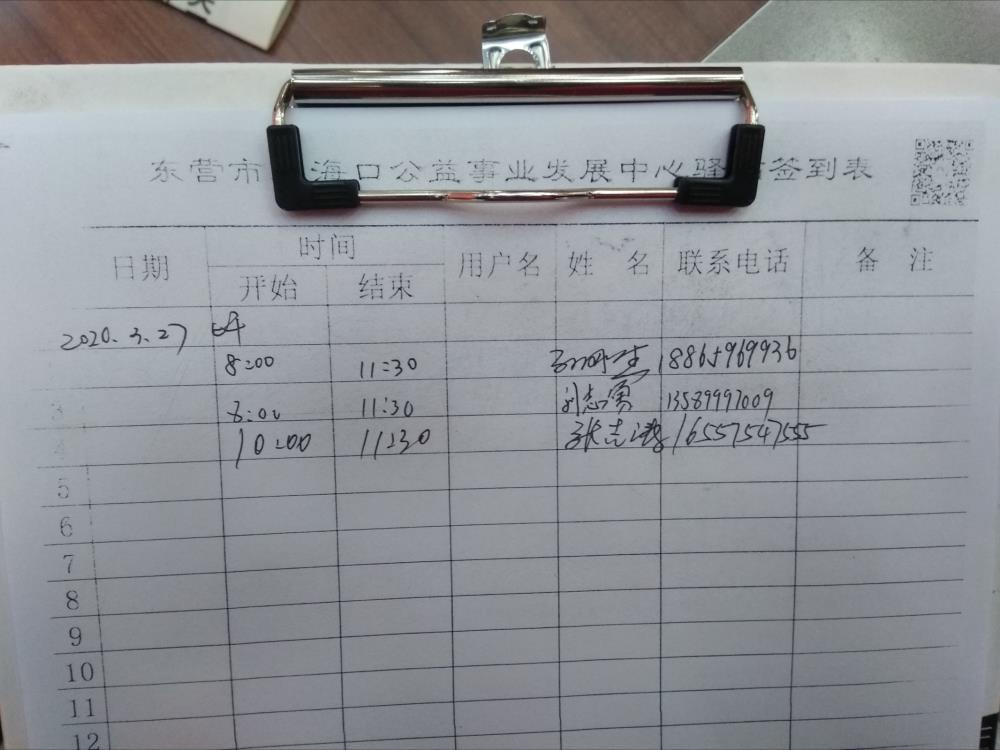 东营市 海口公益事业发展中心驿 签到表
日期 时间 用户名 姓 名 联系电话 备 注
开始 结束
2020.3.27
8:00 11:30 18865969936
3 8:00 11:30 刘志勇 13589997009
4 10:00 11:30 16557547555
5
6
7
8
9
10
11
12